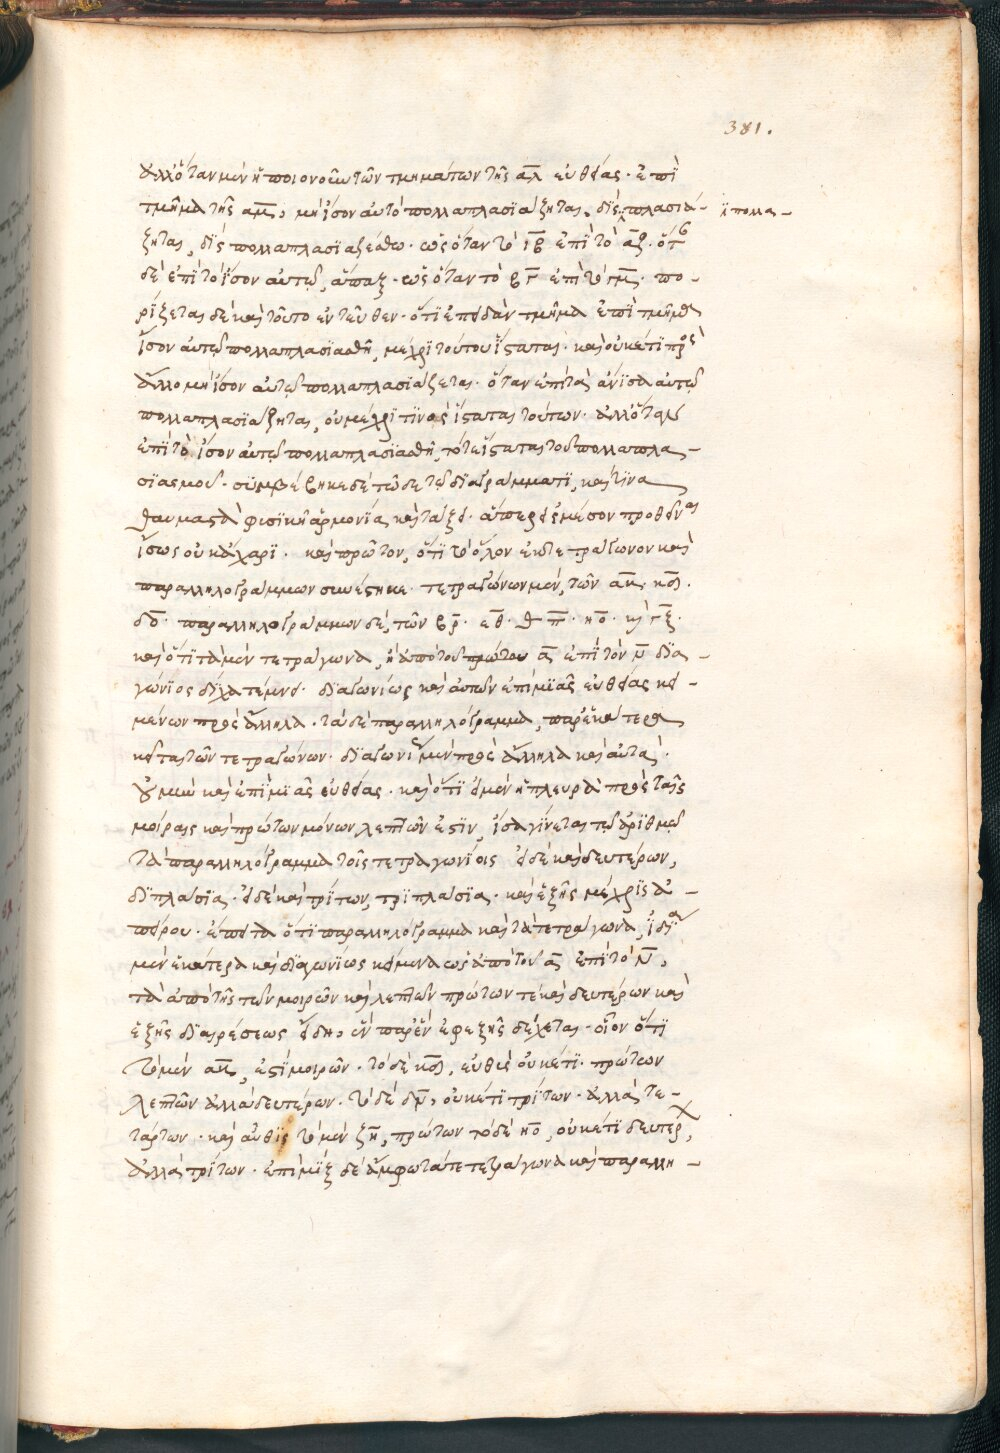 381.
ἀλλ' ὅταν μὲν ἡποιονοῦν τῶν τμημάτων τῆς αλ εὐθείας· ἐπὶ
τμῆμα τῆς αμ, μὴ ἴσον αὐτὸ πολλαπλασϊάζηται, δὶς πλασιά-
ἢ πολλα-
ζηται, δῒς πολλαπλασϊαζέσθω· ὡς ὅταν τὸ ιβ ἐπὶ τὸ αξ· ὅτ
δὲ ἐπὶ τὸ ἴσον αὐτῷ, ἅπαξ· ὡς ὅταν τὸ βγ ἐπὶ τὸ γμ· πο-
ρίζεται δὲ καὶ τοῦτο ἐντεῦθεν· ὅτϊ ἐπειδὰν τμῆμα ἐπὶ τμῆμα
ἴσον αὐτῷ πολλαπλασϊασθῇ, μέχρϊ τούτου ἵσταται· καὶ οὐκέτϊ πρὸς
ἄλλο μὴ ἴσον αὐτῷ πολλαπλασϊάζεται· ὅταν ἐπὶ τὰ ἄνϊσα αὐτῷ
πολλαπλασϊάζηται, οὐ μέχρϊ τϊνὸς ἵσταται τούτων· ἀλλ' ὅταν
ἐπὶ τὸ ἴσον αὐτῷ πολλαπλασϊασθῇ, τότε ἵσταται τοῦ πολλαπλα-
σϊασμοῦ· συμβέβηκε δὲ τῶδε τῷ δϊαγράμματϊ, καὶ τϊνα
θαυμαστὰ φυσϊκὴ ἁρμονία καὶ τάξει· ἅπερ εἰς μέσον προθεῖναι
ἴσως οὐκ ἄχαρϊ· καὶ πρῶτον, ὅτϊ τὸ ὅλον ἐκ τετραγώνων καὶ
παραλληλογράμμων συνέστηκε· τετραγώνων μὲν, τῶν αν· κο·
δο· παραλληλογράμμων δὲ, τῶν βρ· εθ· θπ· ηο· κὶ γξ·
καὶ ὅτϊ τὰ μὲν τετράγωνα, ἡ ἀπὸ τοῦ πρώτου α ἐπὶ τὸν μ δϊα-
γώνϊος δίχα τέμνει· δϊαγωνίως καὶ αὐτῶν ἐπὶ μϊᾶς εὐθείας κει-
μένων πρὸς ἄλληλα· τὰ δὲ παραλληλόγραμμα, παρ' ἑκάτερα
κεῖται τῶν τετραγώνων· δϊαγωνϊ μὲν πρὸς ἄλληλα καὶ αὐτὰ·
οὐ μὴν καὶ ἐπὶ μϊᾶς εὐθείας· καὶ ὅτϊ εἰ μὲν ἡ πλευρὰ πρὸς ταῖς
μοίραις καὶ πρώτων μόνων λεπτῶν ἐστϊν, ἴσα γίνεται τῷ ἀρϊθμῷ
τὰ παραλληλόγραμμα τοῖς τετραγώνοις εἰ δὲ καὶ δευτέρων,
δϊπλάσϊα· εἰ δὲ καὶ τρίτων, τρϊπλάσϊα· καὶ ἑξῆς μέχρϊς ἀ-
πείρου· ἔπειτα ὅτϊ παραλληλόγραμμα καὶ τὰ τετράγωνα, ἰδία
μὲν ἑκάτερα καὶ δϊαγωνίως κείμενα ὡς ἀπὸ τοῦ α ἐπὶ τὸ μ,
τὰ ἀπὸ τῆς τῶν μοιρῶν καὶ λεπτῶν πρώτων τε καὶ δευτέρων καὶ
ἑξῆς δϊαιρέσεως εἴδη, ἓν παρ' ἓν ἐφεξῆς δέχεται· οἷον ὅτϊ
τὸ μὲν αν, ἐστϊ μοιρῶν· τὸ δὲ κο, εὐθὺς οὐκέτϊ πρώτων
λεπτῶν ἀλλὰ δευτέρων· τὸ δὲ δμ, οὐκέτϊ τρίτων· ἀλλὰ τε-
τάρτων· καὶ αὖθϊς τὸ μὲν ξη, πρώτων τὸ δὲ ηο, οὐκέτϊ δευτέρ,
ἀλλὰ τρίτων· ἐπὶ μὶξ δὲ ἄμφω τά τε τετράγωνα καὶ παραλλη-